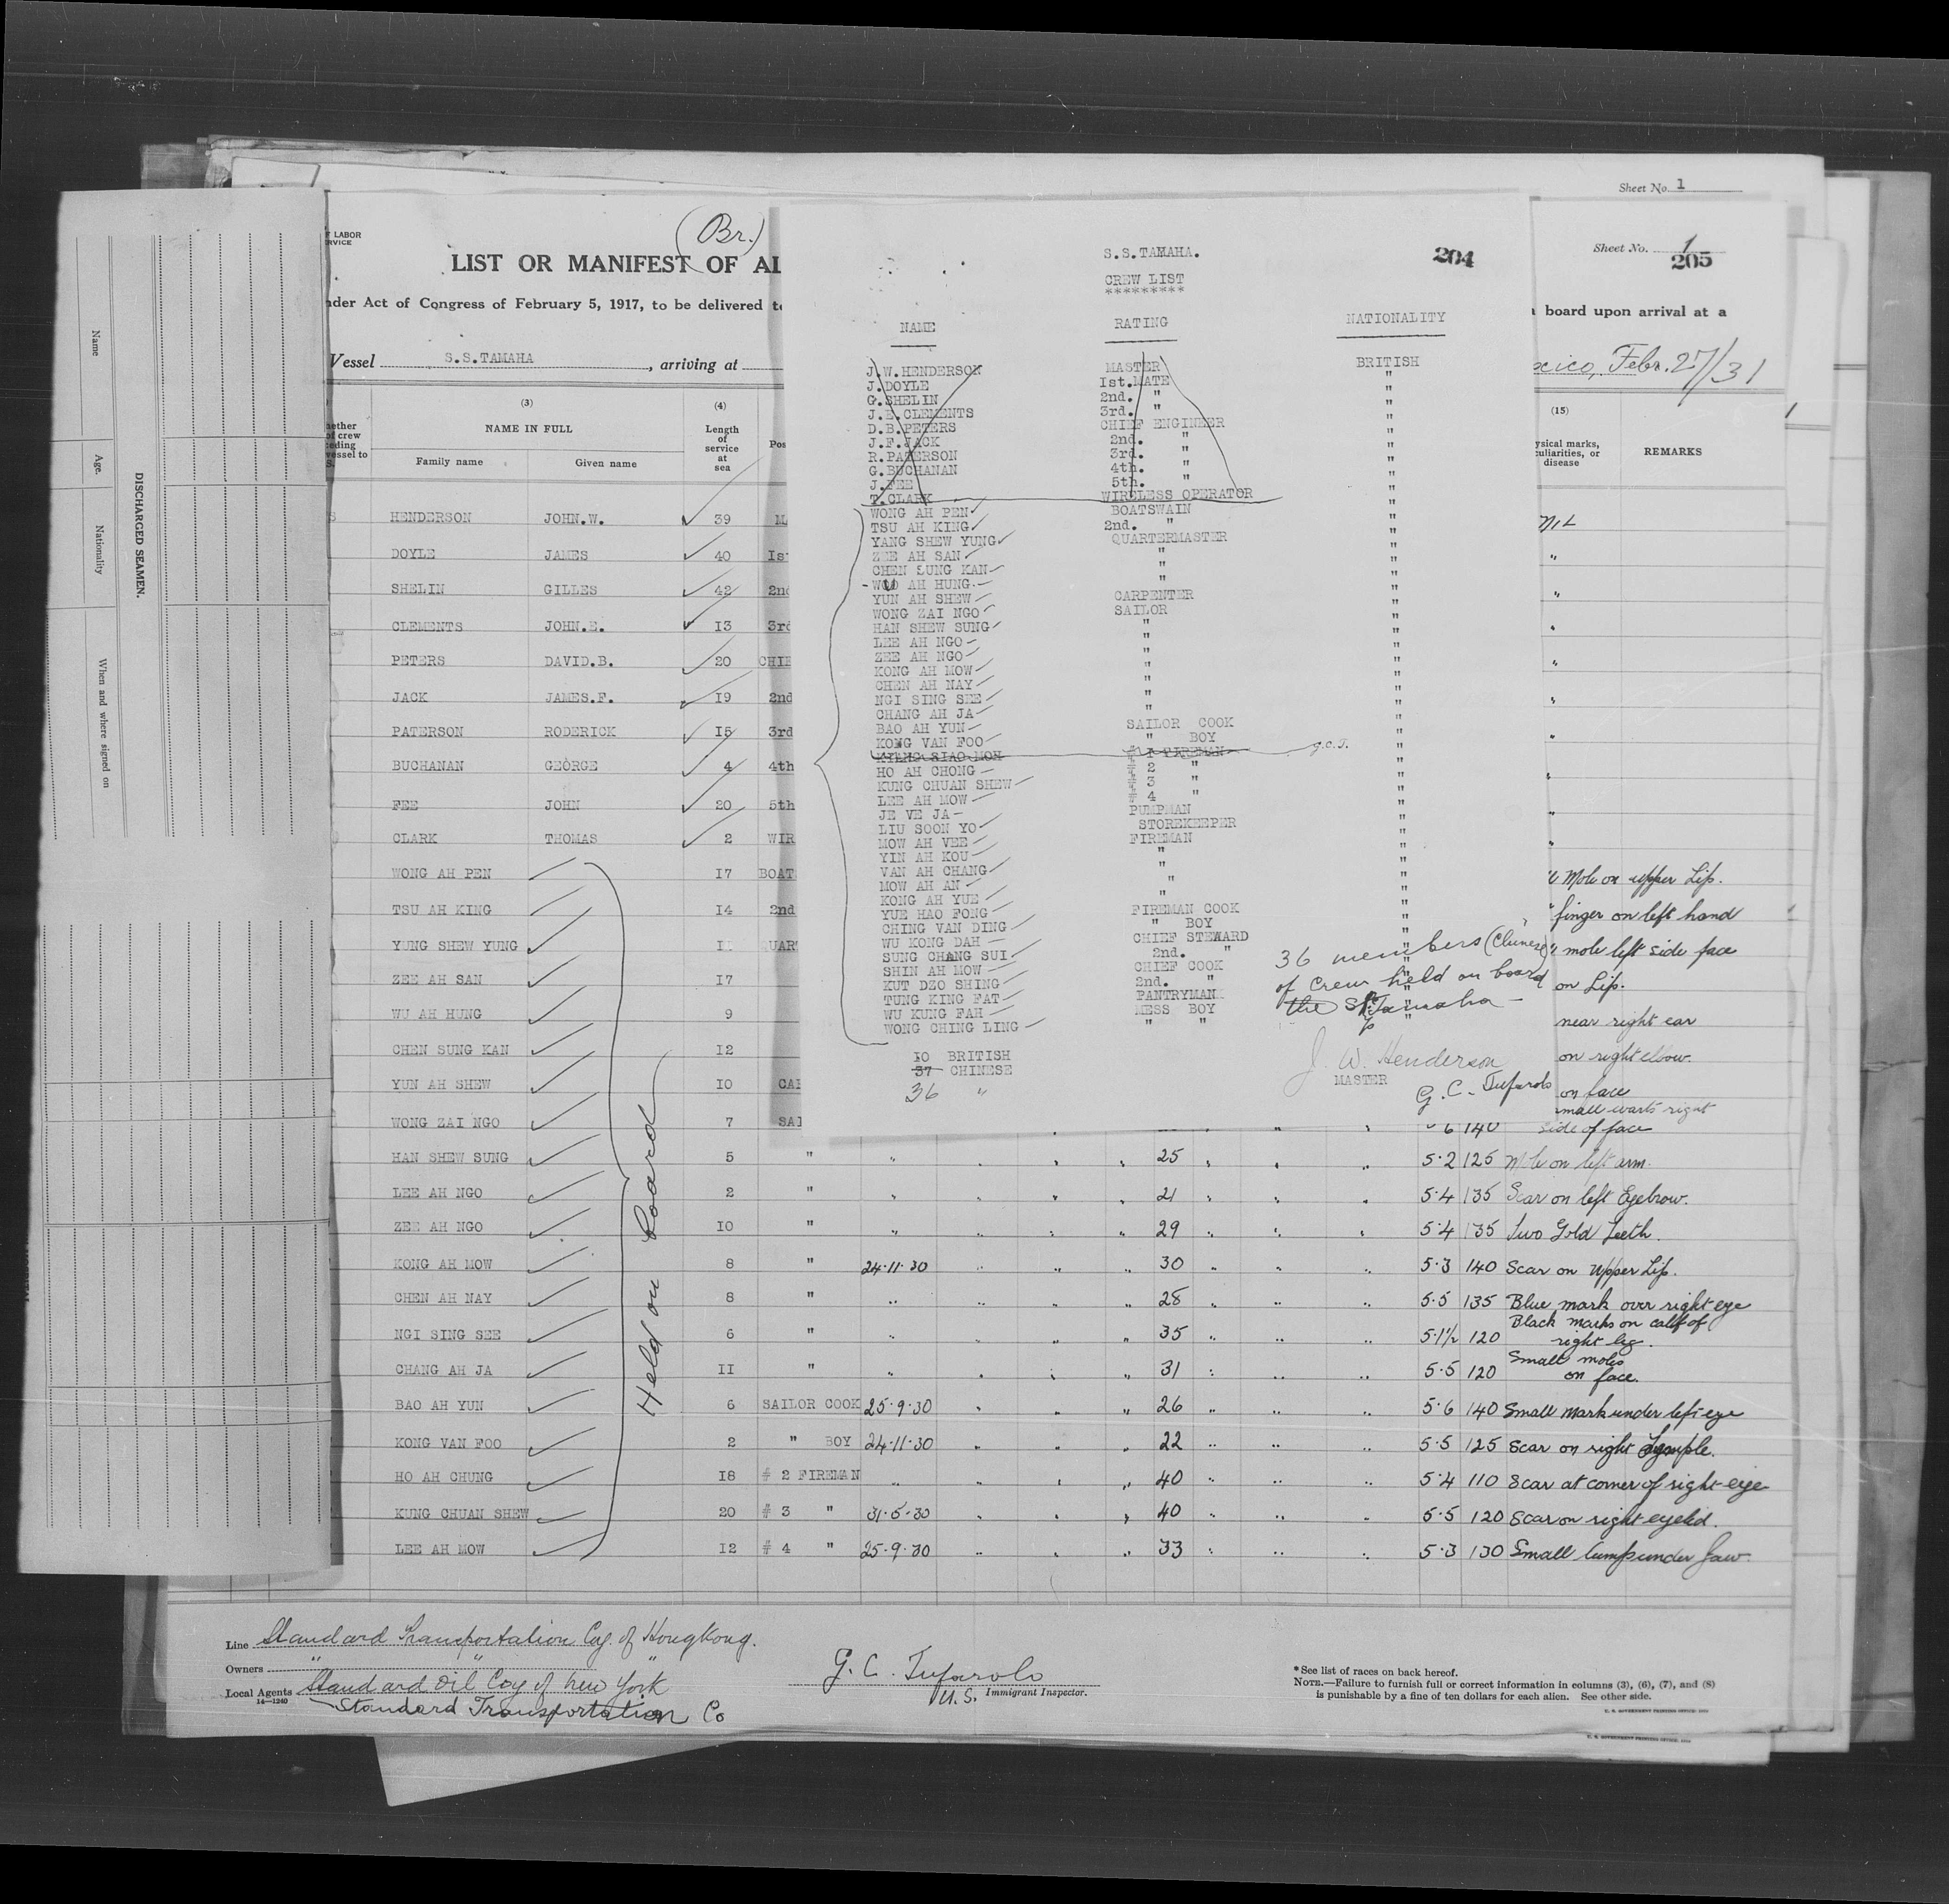 Sheet No. 1
LABOR
(Br.)
LIST OR MANIFEST OF AL
Act of Congress of February 5, 1917, to be delivered
Vessel S.S.TAMAHA, arriving at
Sheet No. 1
205
board upon arrival at a
Febr. 27/31
Name
Age.
Nationality
When and where signed on
DISCHARGED SEAMEN.
(3)
NAME IN FULL
Family name Given name
(4)
Length of service at sea
(15)
marks, or disease
REMARKS
HENDERSON JOHN.W. 39
DOYLE JAMES 40
SHELIN GILLES 42 2nd
CLEMENTS JOHN.E. 13 3rd
PETERS DAVID.B. 20
JACK JAMES.F. 19 2nd
PATERSON RODERICK 15 3rd
BUCHANAN GEORGE 4 4th
FEE JOHN 20 5th
CLARK THOMAS 2
WONG AH PEN 17 Mole on upper Lip.
TSU AH KING 14 2nd finger on left hand
YUNG SHEW YUNG mole left side face
ZEE AH SAN 17 on Lip.
WU AH HUNG 9 near right ear
CHEN SUNG KAN 12 on right elbow.
YUN AH SHEW 10 on face
WONG ZAI NGO 7 140 small warts right side of face
HAN SHEW SUNG 5 " 25 5·2 125 Mole on left arm.
LEE AH NGO 2 " 21 5·4 135 Scar on left Eyebrow.
ZEE AH NGO 10 " 29 5·4 135 Two Gold Teeth.
KONG AH MOW 8 " 24·11·30 30 5·3 140 Scar on Upper Lip.
CHEN AH NAY 8 " 28 5·5 135 Blue mark over right eye
NGI SING SEE 6 " 35 5·1½ 120 Black marks on calf of right leg.
CHANG AH JA 11 " 31 5·5 120 Small moles on face.
BAO AH YUN 6 SAILOR COOK 25·9·30 26 5·6 140 Small mark under left eye
KONG VAN FOO 2 " BOY 24·11·30 22 5·5 125 Scar on right Temple.
HO AH CHUNG 18 # 2 FIREMAN 40 5·4 110 Scar at corner of right eye
KUNG CHUAN SHEW 20 # 3 " 31·5·30 40 5·5 120 Scar on right eyelid.
LEE AH MOW 12 # 4 " 25·9·30 33 5·3 130 Small lump under Jaw.
Held on board
S.S.TAMAHA.
204
CREW LIST
*********
NAME RATING NATIONALITY
J.W.HENDERSON MASTER BRITISH
J.DOYLE 1st.MATE "
G.SHELIN 2nd. " "
J.E.CLEMENTS 3rd. " "
D.B.PETERS CHIEF ENGINEER "
J.F.JACK 2nd. " "
R.PATERSON 3rd. " "
G.BUCHANAN 4th. " "
J.FEE 5th. " "
T.CLARK WIRELESS OPERATOR "
WONG AH PEN BOATSWAIN "
TSU AH KING 2nd. " "
YANG SHEW YUNG QUARTERMASTER "
ZEE AH SAN " "
CHEN SUNG KAN " "
WU AH HUNG " "
YUN AH SHEW CARPENTER "
WONG ZAI NGO SAILOR "
HAN SHEW SUNG " "
LEE AH NGO " "
ZEE AH NGO " "
KONG AH MOW " "
CHEN AH NAY " "
NGI SING SEE " "
CHANG AH JA " "
BAO AH YUN SAILOR COOK "
KONG VAN FOO " BOY "
SIAO MOH # 1 FIREMAN G.C.T.
HO AH CHONG # 2 " "
KUNG CHUAN SHEW # 3 " "
LEE AH MOW # 4 " "
JE VE JA PUMPMAN "
LIU SOON YO STOREKEEPER "
MOW AH VEE FIREMAN "
YIN AH KOU " "
VAN AH CHANG " "
MOW AH AN " "
KONG AH YUE " "
YUE HAO FONG FIREMAN COOK "
CHING VAN DING " BOY "
WU KONG DAH CHIEF STEWARD "
SUNG CHANG SUI 2nd. " "
SHIN AH MOW CHIEF COOK "
KUT DZO SHING 2nd. " "
TUNG KING FAT PANTRYMAN "
WU KUNG FAH MESS BOY "
WONG CHING LING " "
36 members (Chinese)
of crew held on board
the SS Tamaha
10 BRITISH
37 CHINESE
36 "
J. W. Henderson
MASTER
G. C. Tufarolo
Line Standard Transportation Coy. of Hongkong.
Owners " " "
Local Agents Standard Oil Coy of New York
14—1240
Standard Transportation Co
G. C. Tufarolo
U.S. Immigrant Inspector.
*See list of races on back hereof.
NOTE.—Failure to furnish full or correct information in columns (3), (6), (7), and (8)
is punishable by a fine of ten dollars for each alien. See other side.